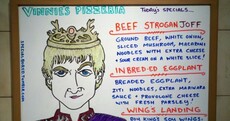 VINNIE'S PIZZERIA
Today's Specials...
BEEF STROGANJOFF
GROUND BEEF, WHITE ONION,
SLICED MUSHROOM, MACARONI
NOODLES WITH EXTRA CHEESE
+ SOUR CREAM ON A WHITE SLICE!
INBRED-ED EGGPLANT
BREADED EGGPLANT,
ZITI NOODLES, EXTRA MARINARA
SAUCE + PROVOLONE CHEESE
WITH FRESH PARSLEY!
WINGS LANDING